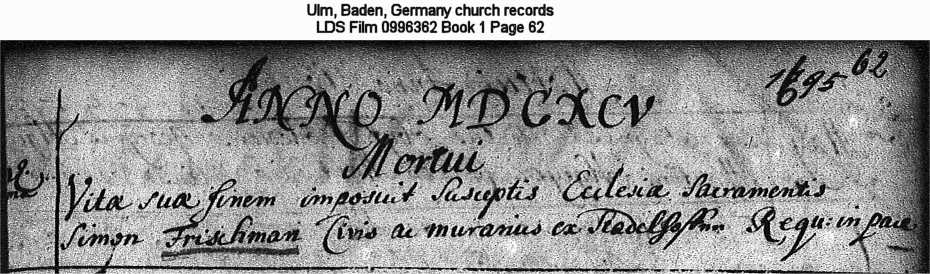 Ulm, Baden, Germany church records
LDS Film 0996362 Book 1 Page 62
1695 62
ANNO MDCXCV
Mortui
Vitæ suæ finem imposuit susceptis Ecclesiæ Sacramentis
Simon Frischman Civis ac muranius ex Requ: in pace